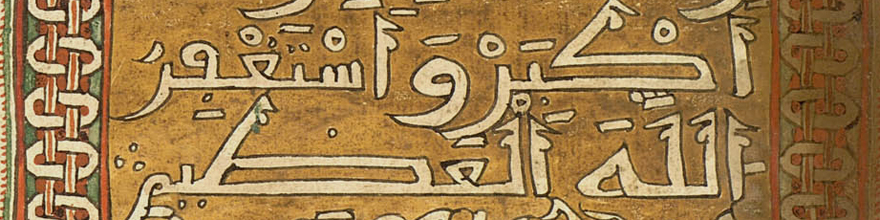 اكبر واستغفر
الله العظيم